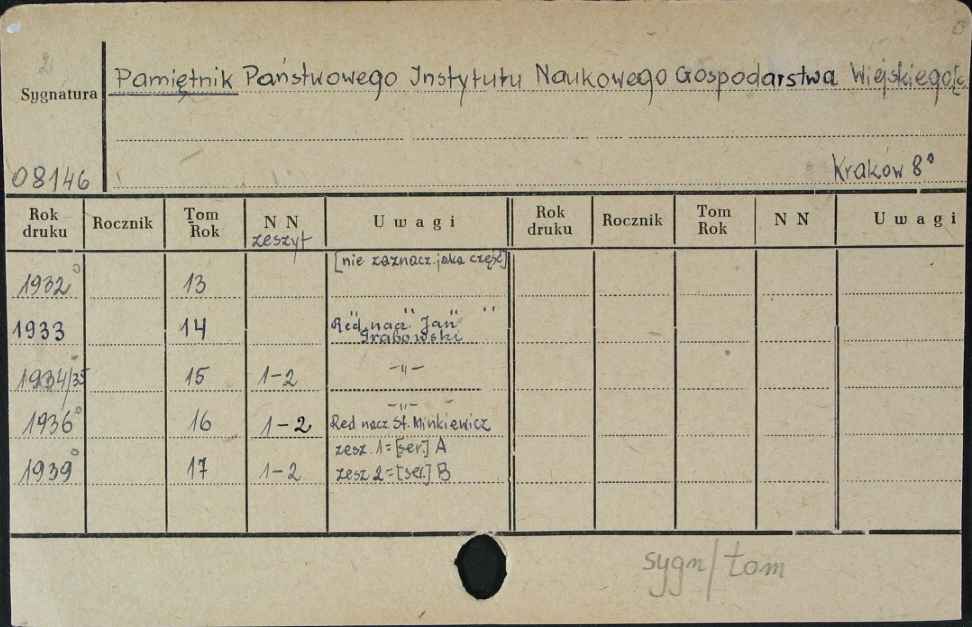 2
Sygnatura Pamiętnik Państwowego Instytutu Naukowego Gospodarstwa Wiejskiego
08146 Kraków 8°
Rok druku Rocznik Tom Rok N N zeszyt U w a g i Rok druku Rocznik Tom Rok N N U w a g i
[nie zaznacz. jako część]
1932° 13
1933 14 " " " "
Red. nacz. Jan Grabowski
1934/35 15 1-2 -"-
1936° 16 1-2 -"-
Red nacz. St. Minkiewicz
1939° 17 1-2 zesz. 1=[ser.] A
zesz 2=[ser.] B
sygn/tom